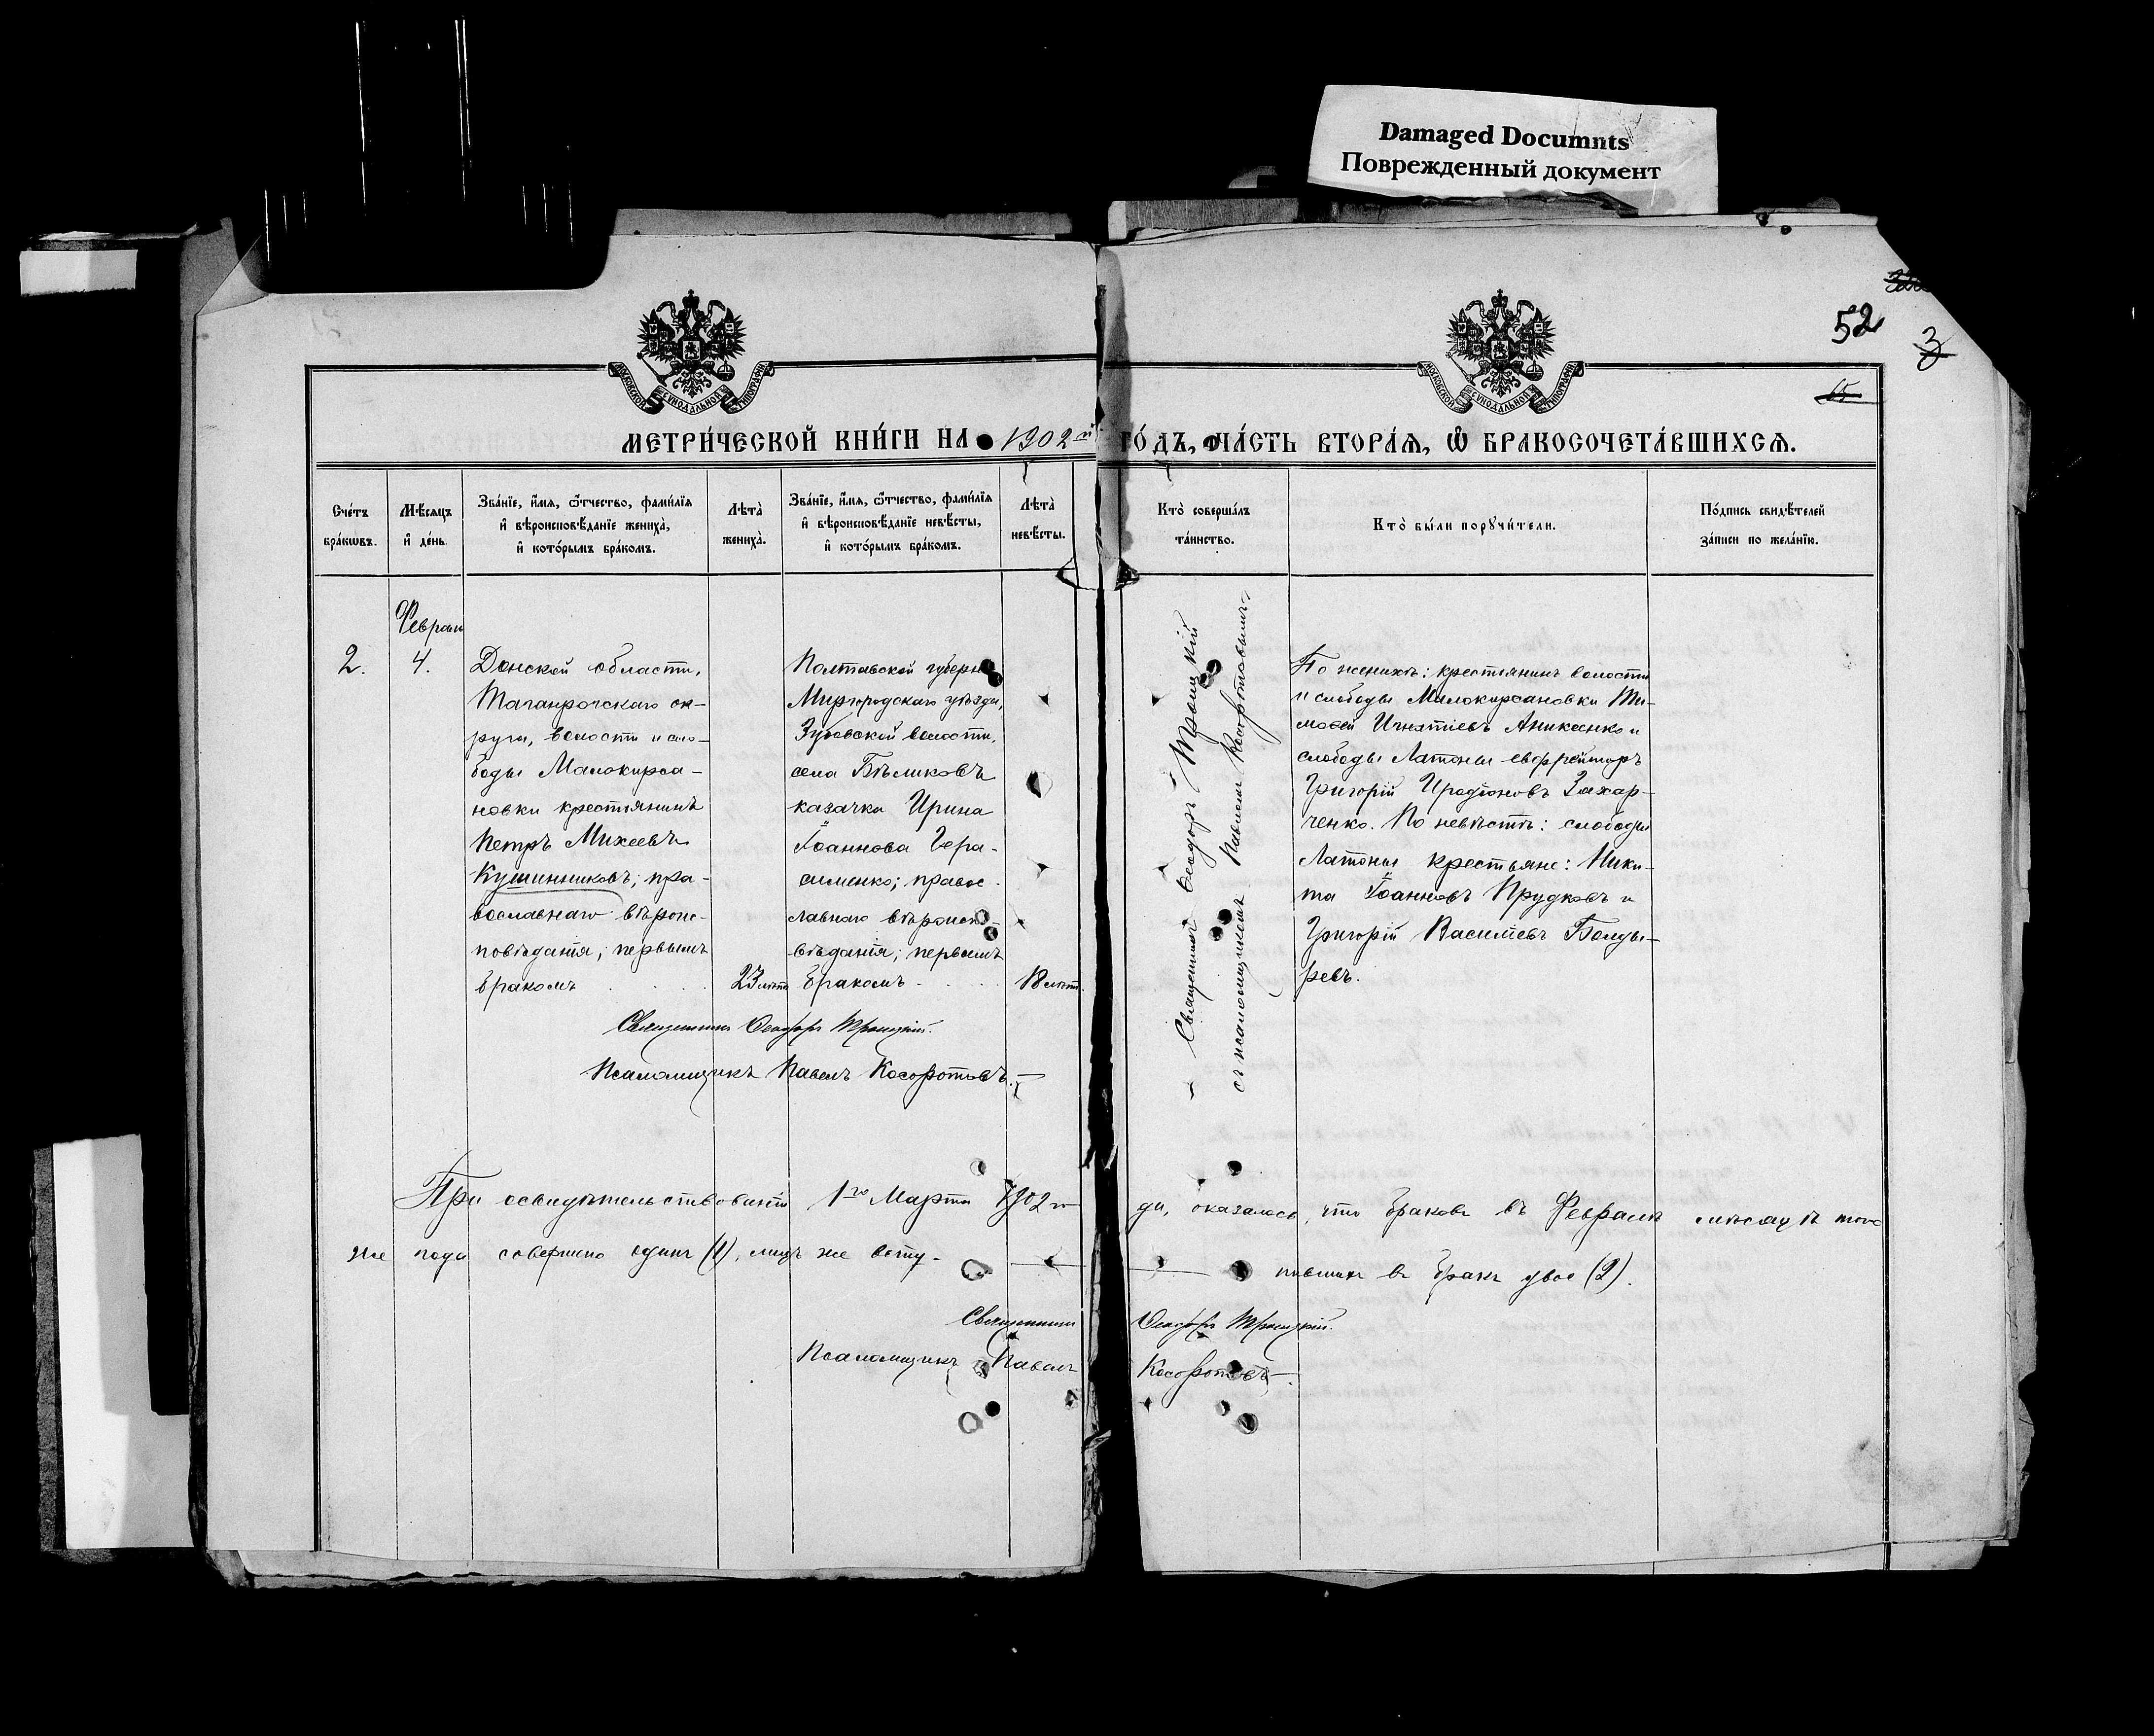 Damaged Documnts
Поврежденный документ
52
3
15
МОСКОВСКОЙ СѴНОДАЛЬНОЙ ТИПОГРАФІИ
МОСКОВСКОЙ СѴНОДАЛЬНОЙ ТИПОГРАФІИ
МЕТРИ́ЧЕСКОЙ КНИ́ГИ НА 1902й ГО́ДЪ, ЧА́СТЬ ВТОРА́Я, Ѡ҆ БРАКОСОЧЕТА́ВШИХСЯ.
Сче́тъ
бра́кѡвъ.
Мѣ́сяцъ
и҆ де́нь.
Зва́нїе, и҆́мя, ѻ҆́тчество, фами́лїя
и҆ вѣроисповѣ́данїе жениха̀,
и҆ кото́рымъ бра́комъ.
Лѣта̀
жениха̀.
Зва́нїе, и҆́мя, ѻ҆́тчество, фами́лїя
и҆ вѣроисповѣ́данїе невѣ́сты,
и҆ кото́рымъ бра́комъ.
Лѣта̀
невѣ́сты.
Кто̀ соверша́лъ
та́инство.
Кто̀ бы́ли порꙋчи́тели.
По́дпись свидѣ́телей
за́писи по жела́нїю.
Феврал
2.
4.
Донской области,
Таганрогскаго ок-
руга, волости и сло-
боды Малокирса-
новки крестьянинъ
Петръ Михеевъ
Кушинниковъ; пра-
вославнаго вѣроис-
повѣданія; первымъ
бракомъ
23 лѣтъ
Полтавской губерн
Миргородскаго уѣзда,
Зубовской волости,
села Бѣликовъ
казачка Ирина
Іоаннова Гера-
сименко; правос-
лавнаго вѣроиспо-
вѣданія; первымъ
бракомъ
18 лѣтъ.
Священникъ Ѳеодоръ Троицкій.
Псаломщикъ Павелъ Косоротовъ.
Священникъ Ѳеодоръ Троицкій
съ псаломщикомъ Павломъ Косоротовымъ.
По женихѣ: крестьянинъ волости
и слободы Малокирсановки Ти-
моѳей Игнатіевъ Аникеенко и
слободы Латоны ефрейторъ
Григорій Иродіоновъ Захар-
ченко. По невѣстѣ: слободы
Латоны крестьяне: Ники-
та Іоанновъ Прудковъ и
Григорій Василіевъ Болды-
ревъ.
При освидѣтельствованіи 1го Марта 1902 го-
да, оказалось, что браковъ въ Февралѣ мѣсяцѣ того
же года совершено одинъ (1), лицъ же всту-
пившихъ въ бракъ двое (2).
Священникъ Ѳеодоръ Троицкій.
Псаломщикъ Павелъ Косоротовъ.